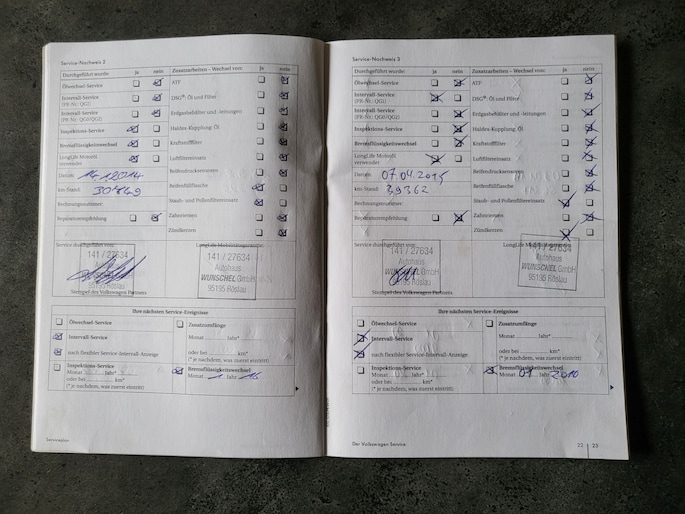 Service-Nachweis 2
Durchgeführt wurde: ja nein
Zusatzarbeiten – Wechsel von: ja nein
Ölwechsel-Service
ATF
Intervall-Service
(PR-Nr.: QG1)
DSG®: Öl und Filter
Intervall-Service
(PR-Nr.: QG0/QG2)
Erdgasbehälter und -leitungen
Inspektions-Service
Haldex-Kupplung: Öl
Bremsflüssigkeitswechsel
Kraftstofffilter
LongLife Motoröl
verwendet
Luftfiltereinsatz
Datum:
Reifendrucksensoren
km-Stand:
Reifenfüllflasche
Rechnungsnummer:
Staub- und Pollenfiltereinsatz
Reparaturempfehlung
Zahnriemen
Zündkerzen
Service durchgeführt von:
LongLife Mobilitätsgarantie:
141 / 27634
Autohaus
95195 Röslau
141 / 27634
Autohaus
WUNSCHEL GmbH
95195 Röslau
Stempel des Volkswagen Partners
Ihre nächsten Service-Ereignisse
Ölwechsel-Service
Zusatzumfänge
Intervall-Service
Monat Jahr*
nach flexibler Service-Intervall-Anzeige
oder bei km*
(* je nachdem, was zuerst eintritt)
Inspektions-Service
Monat Jahr*
oder bei km*
(* je nachdem, was zuerst eintritt)
Bremsflüssigkeitswechsel
Monat 1 Jahr 16
Serviceplan
Service-Nachweis 3
Durchgeführt wurde: ja nein
Zusatzarbeiten – Wechsel von: ja nein
Ölwechsel-Service
ATF
Intervall-Service
(PR-Nr.: QG1)
DSG®: Öl und Filter
Intervall-Service
(PR-Nr.: QG0/QG2)
Erdgasbehälter und -leitungen
Inspektions-Service
Haldex-Kupplung: Öl
Bremsflüssigkeitswechsel
Kraftstofffilter
LongLife Motoröl
verwendet
Luftfiltereinsatz
Datum: 07.04.2015
Reifendrucksensoren
km-Stand: 39362
Reifenfüllflasche
Rechnungsnummer:
Staub- und Pollenfiltereinsatz
Reparaturempfehlung
Zahnriemen
Zündkerzen
Service durchgeführt von:
LongLife Mobilitätsgarantie:
141 / 27634
Autohaus
WUNSCHEL GmbH
95195 Röslau
141 / 27634
Autohaus
WUNSCHEL GmbH
95195 Röslau
Stempel des Volkswagen Partners
Ihre nächsten Service-Ereignisse
Ölwechsel-Service
Zusatzumfänge
Intervall-Service
Monat Jahr*
nach flexibler Service-Intervall-Anzeige
oder bei km*
(* je nachdem, was zuerst eintritt)
Inspektions-Service
Monat Jahr*
oder bei km*
(* je nachdem, was zuerst eintritt)
Bremsflüssigkeitswechsel
Monat 01 Jahr
Der Volkswagen Service
22 23